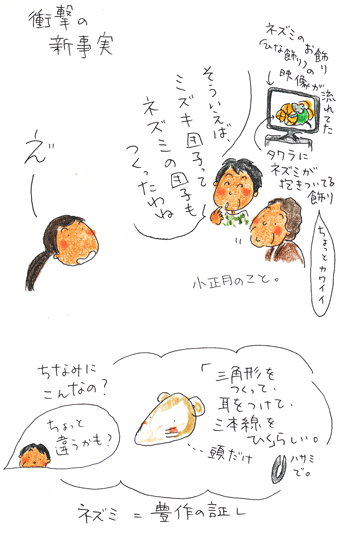 衝撃の
新事実
ネズミのお飾り
(ひな飾り)の
映像が
流れてた
タワラに
ネズミが
抱きついてる
飾り
ちょっとカワイイ
そういえば、
ミズキ団子って
ネズミの団子も
つくったわね
えっ
小正月のこと。
「三角形を
つくって、
耳をつけて、
三本線を
ひくらしい。
ハサミ
で。
頭だけ
ちなみに
こんなの?
ちょっと
違うかも?
ネズミ=豊作の証し